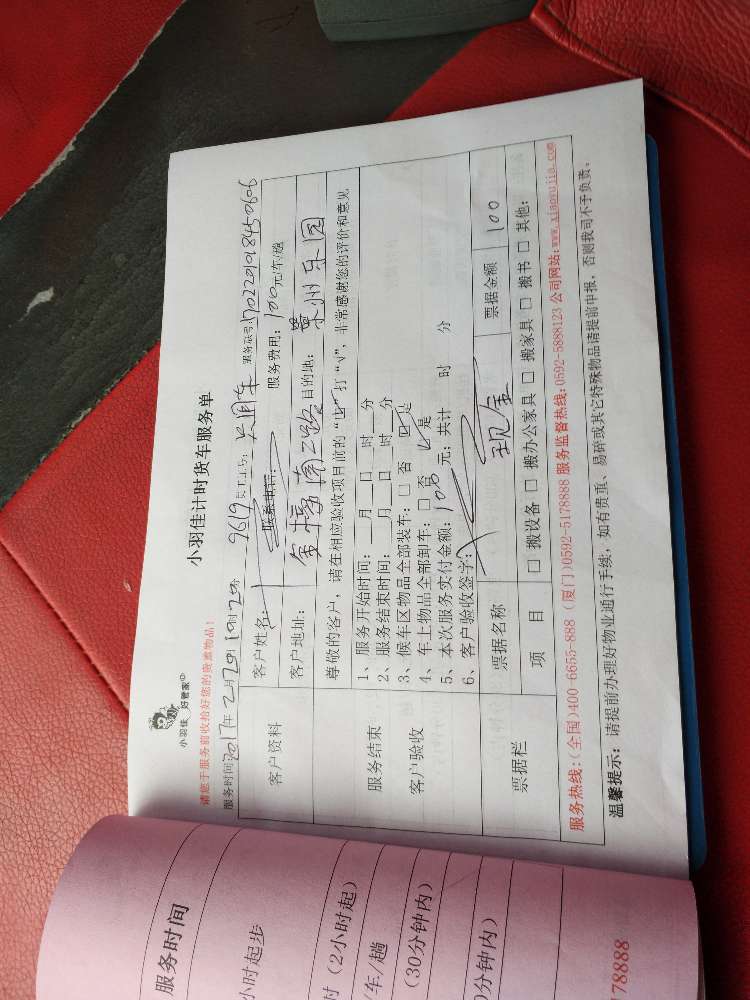 小羽佳 好管家
小羽佳计时货车服务单
请您于服务前收拾好您的贵重物品!
服务时间2017年2月20日10时20分 9619
客户资料
客户姓名:
服务费用:100元/车/趟
客户地址: 目的地:
尊敬的客户,请在相应验收项目前的“□”打“√”,非常感谢您的评价和意见
服务结束
客户验收
1、服务开始时间:__月__日__时__分
2、服务结束时间:__月__日__时__分
3、候车区物品全部装车:□ 否 ☑ 是
4、车上物品全部卸车:□ 否 ☑ 是
5、本次服务实付金额:100 元;共计 时 分
6、客户验收签字:
票据栏
票据名称 现金 票据金额 100
项 目 □ 搬设备 □ 搬办公家具 □ 搬家具 □ 搬书 □ 其他:
服务热线:(全国)400-6655-888 (厦门)0592-5178888 服务监督热线:0592-5888123 公司网站:www.xiaoyujia.com
温馨提示:请提前办理好物业通行手续,如有贵重、易碎或其它特殊物品请提前申报,否则我司不予负责。
服务时间
小时起步
时(2小时起)
/车/趟
(30分钟内)
0分钟内)
178888